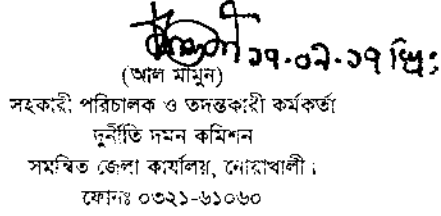 ১৭-০২-১৭ খ্রিঃ
(আল মামুন)
সহকারী পরিচালক ও তদন্তকারী কর্মকর্তা
দুর্নীতি দমন কমিশন
সমন্বিত জেলা কার্যালয়, নোয়াখালী।
ফোনঃ ০৩২১-৬১০৬০